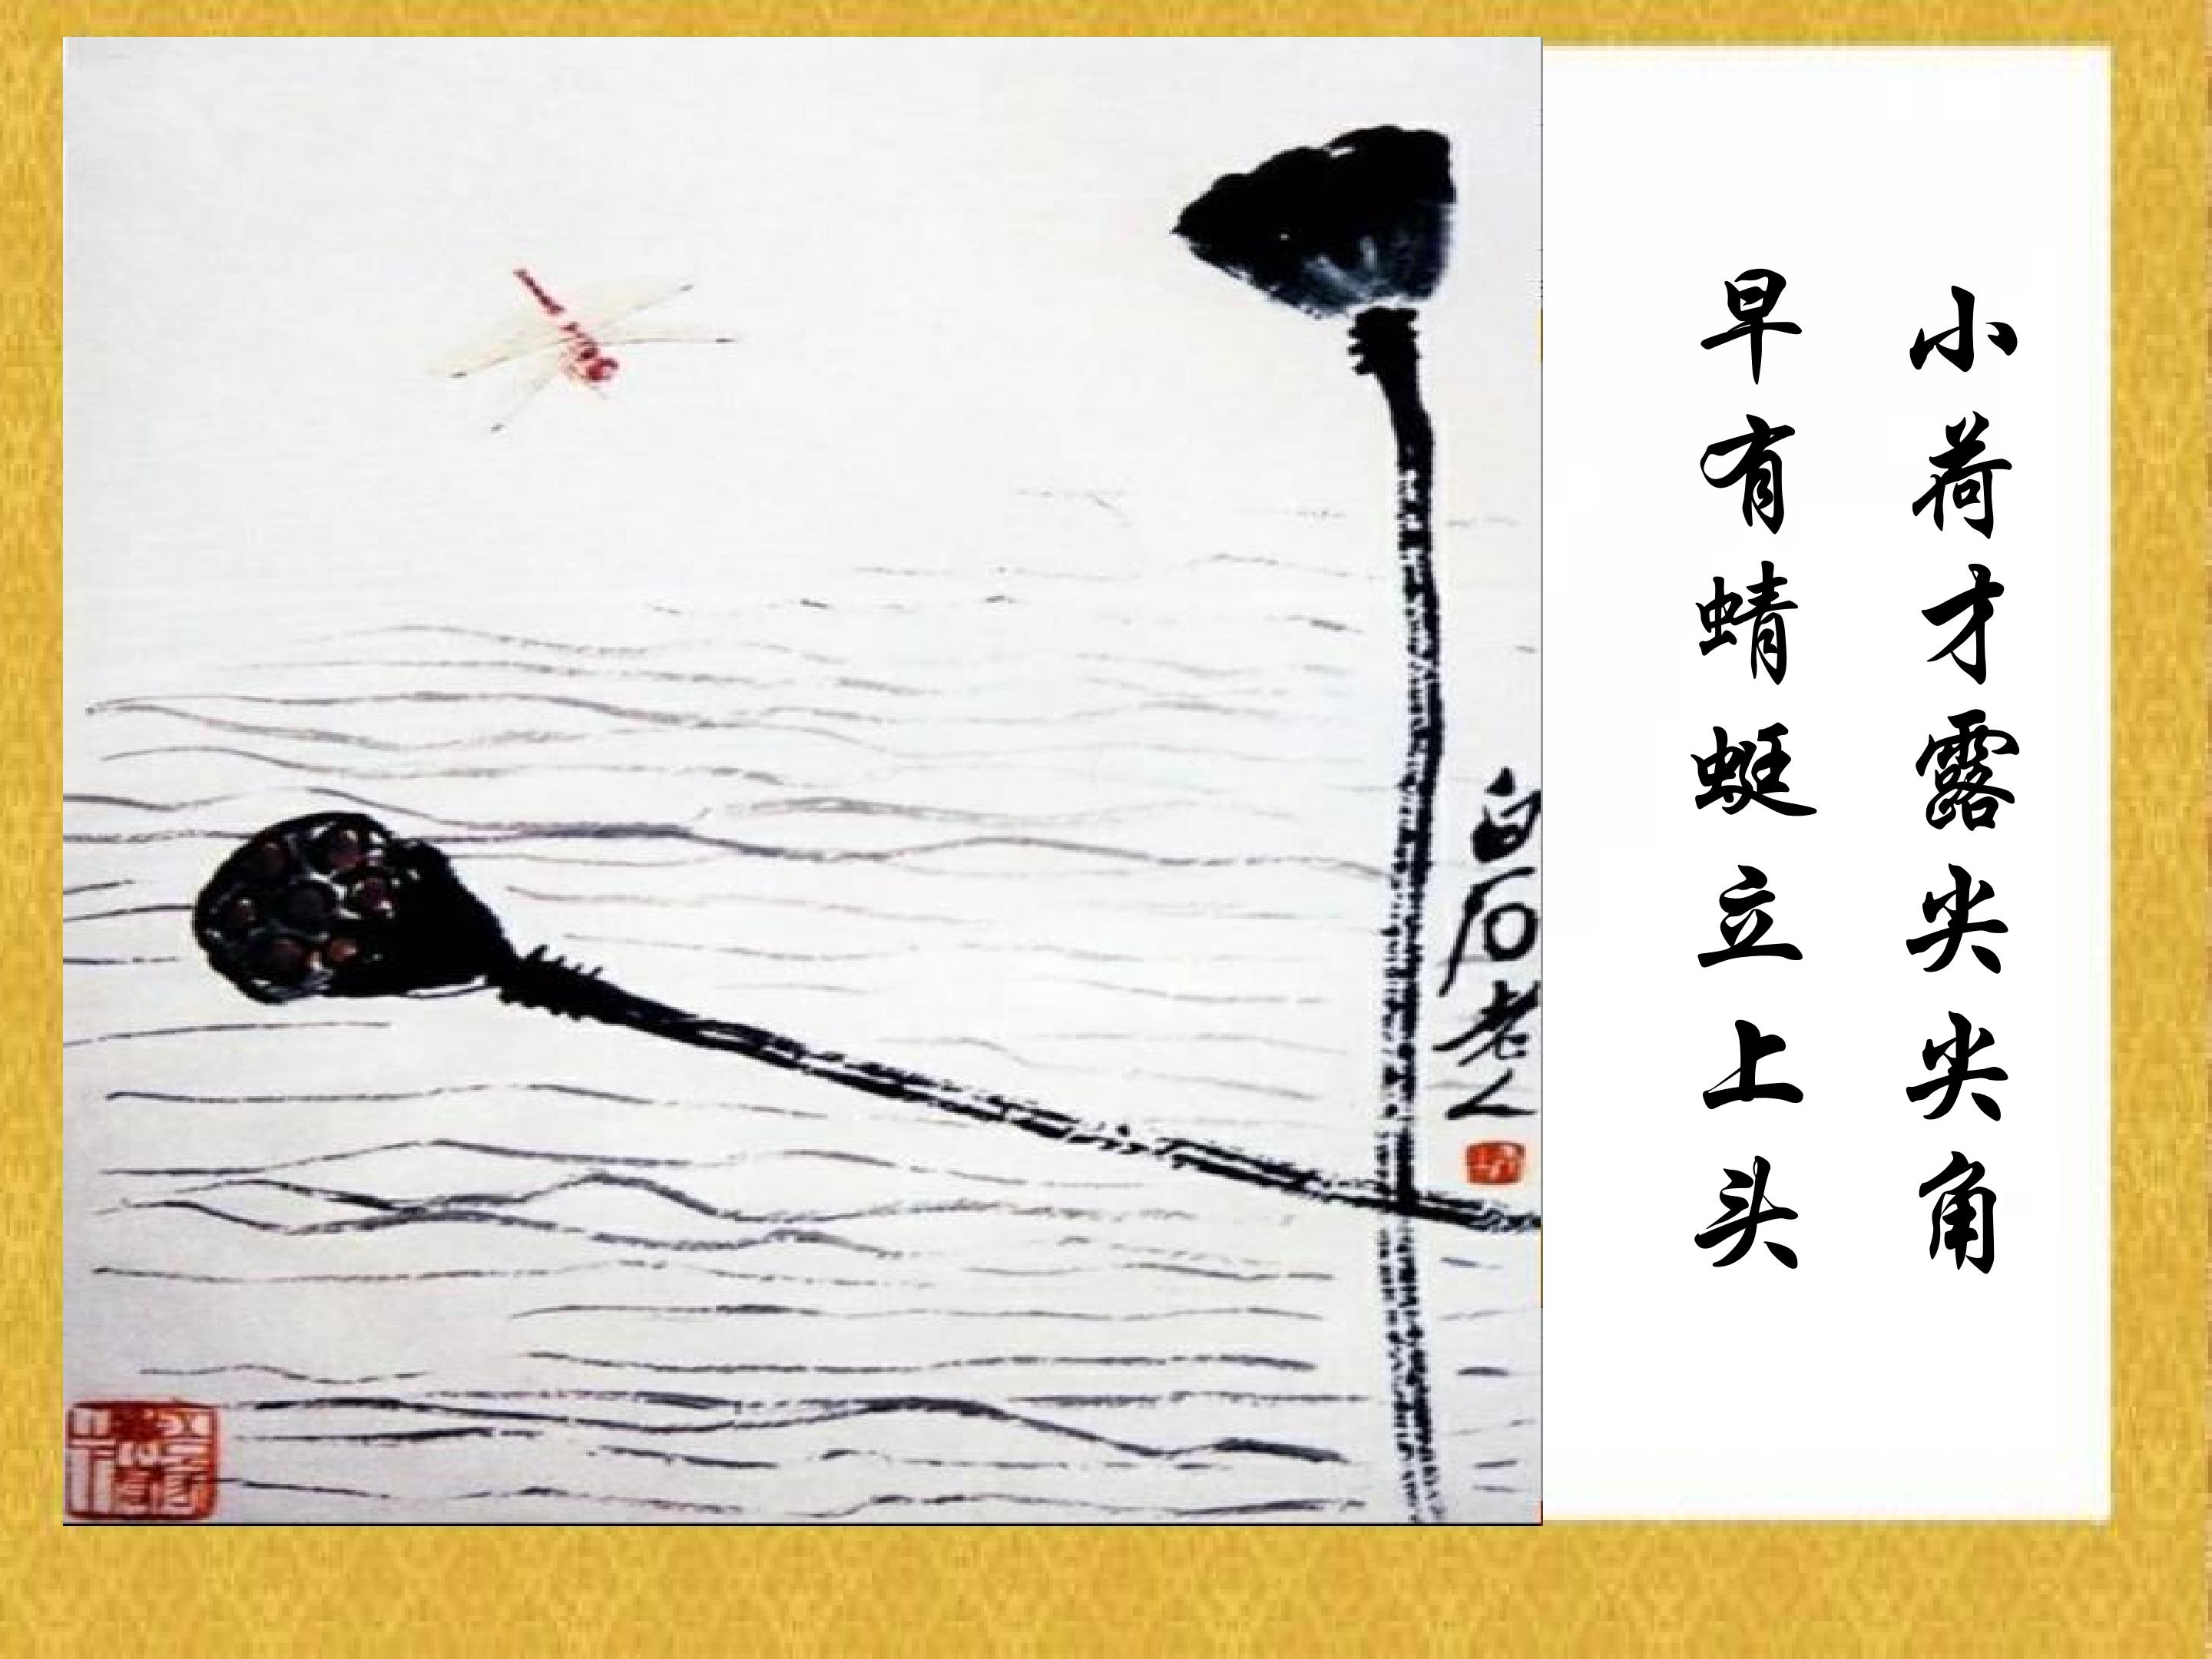 小荷才露尖尖角
早有蜻蜓立上头
白石老人